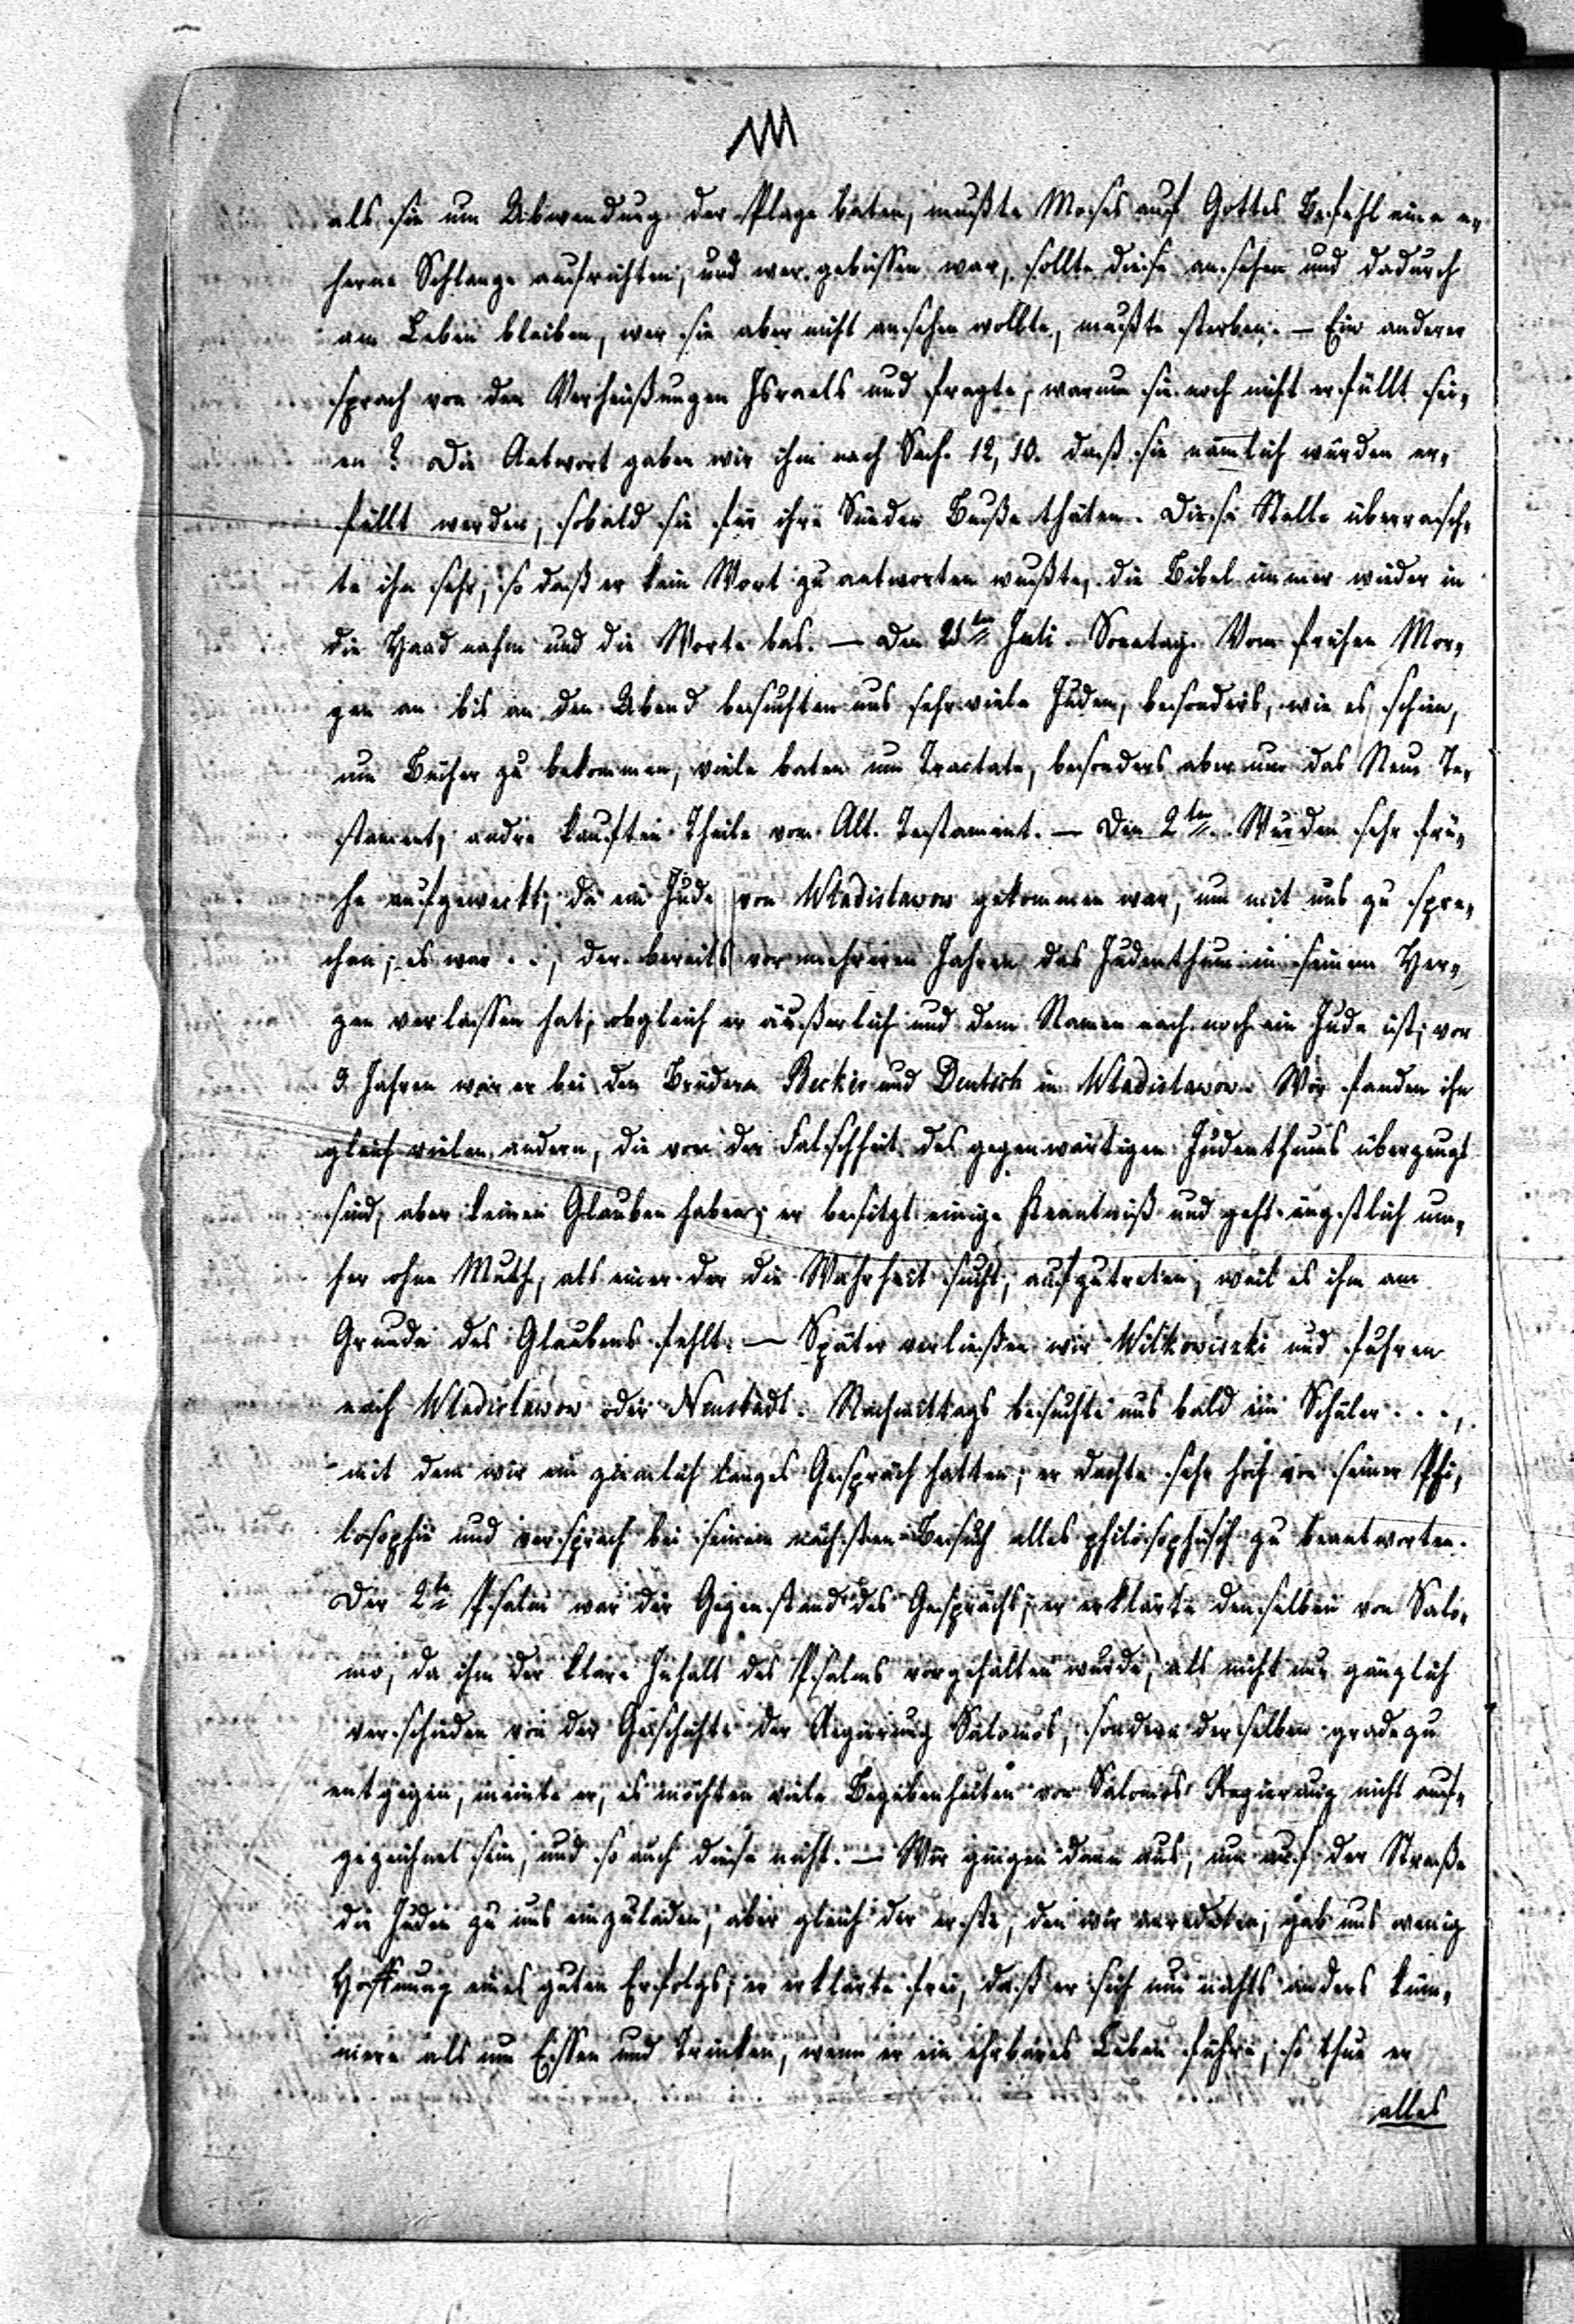 als sie um Abwendung der Plage baten, mußte Moses auf Gottes Befehl eine e-
herne Schlange aufrichten, und wer gebissen war, sollte diese ansehen und dadurch
am Leben bleiben, wer sie aber nicht ansehen wollte, mußte sterben. — Ein anderer
sprach von den Verheißungen Israels und fragte, warum sie noch nicht erfüllt sei-
en? Die Antwort gaben wir ihm nach Sach. 12, 10. daß sie nämlich würden er-
füllt werden, sobald sie für ihre Sünden Buße thäten. Diese Stelle überrasch-
te ihn sehr, so daß er kein Wort zu antworten wußte, die Bibel immer wieder in
die Hand nahm und die Worte las. — Den ten Juli. Sonntag. Vom frühen Mor-
gen an bis an den Abend besuchten uns sehr viele Juden, besonders, wie es schien,
um Bücher zu bekommen, viele baten um Tractate, besonders aber um das Neue Te-
stament, andre kauften Theile vom Alt. Testament. — Den 2ten. Wurden sehr frü-
he aufgeweckt, da ein Jude von Wladislawow gekommen war, um mit uns zu spre-
chen; es war . ., der bereits vor mehreren Jahren das Judenthum in seinem Her-
zen verlassen hat, obgleich er äußerlich und dem Namen nach noch ein Jude ist; vor
9 Jahren war er bei den Brüdern Becker und Deutsch in Wladislawow. Wir fanden ihn
gleich vielen andern, die von der Falschheit des gegenwärtigen Judenthums überzeugt
sind, aber keinen Glauben haben; er besitzt einige Kenntniß und geht ängstlich um-
her ohne Muth, als einer der die Wahrheit sucht, aufzutreten, weil es ihm am
Grunde des Glaubens fehlt. — Später verließen wir Wilkowiszki und fuhren
nach Wladislawow oder Neustadt. Nachmittags besuchte uns bald ein Schüler . . .,
mit dem wir ein ziemlich langes Gespräch hatten; er dachte sehr hoch von seiner Phi-
losophie und versprach bei seinem nächsten Besuch alles philosophisch zu beantworten.
Der 2te Psalm war der Gegenstand des Gesprächs; er erklärte denselben von Salo-
mo, da ihm der klare Inhalt des Psalms vorgehalten wurde, als nicht nur gänzlich
verschieden von der Geschichte der Regierung Salomos, sondern derselben gradezu
entgegen, meinte er, es möchten viele Begebenheiten von Salomos Regierung nicht auf-
gezeichnet sein, und so auch diese nicht. — Wir gingen dann aus, um auf der Straße
die Juden zu uns einzuladen, aber gleich der erste, den wir anredeten, gab uns wenig
Hoffnung eines guten Erfolgs; er erklärte frei, daß er sich um nichts anders küm-
mere als um Essen und Trinken, wenn er ein ehrbares Leben führe, so thue er
alles